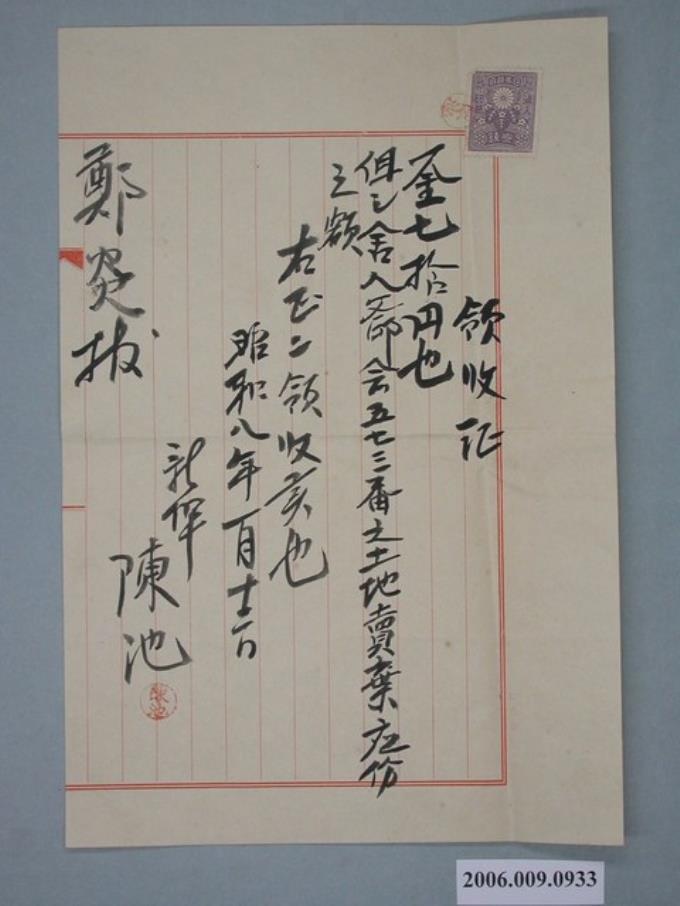 領收証
金七拾円也
但シ舍人 會五七三番之土地賣棄应份
之額
右正ニ領收 也
昭和八年一月十二日
新 陳池
鄭炎
陳池
2006.009.0933